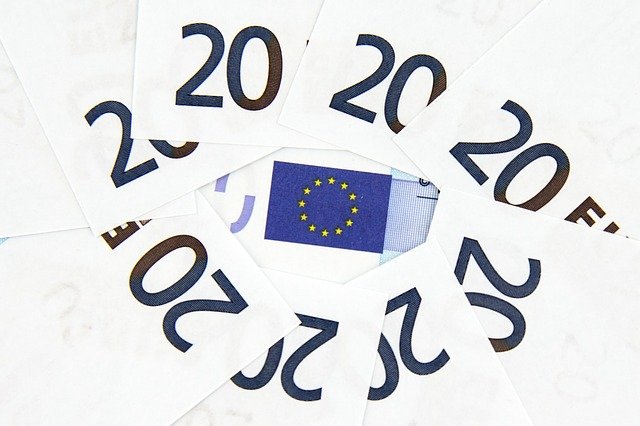 20
20
20
20
20
20
20
20